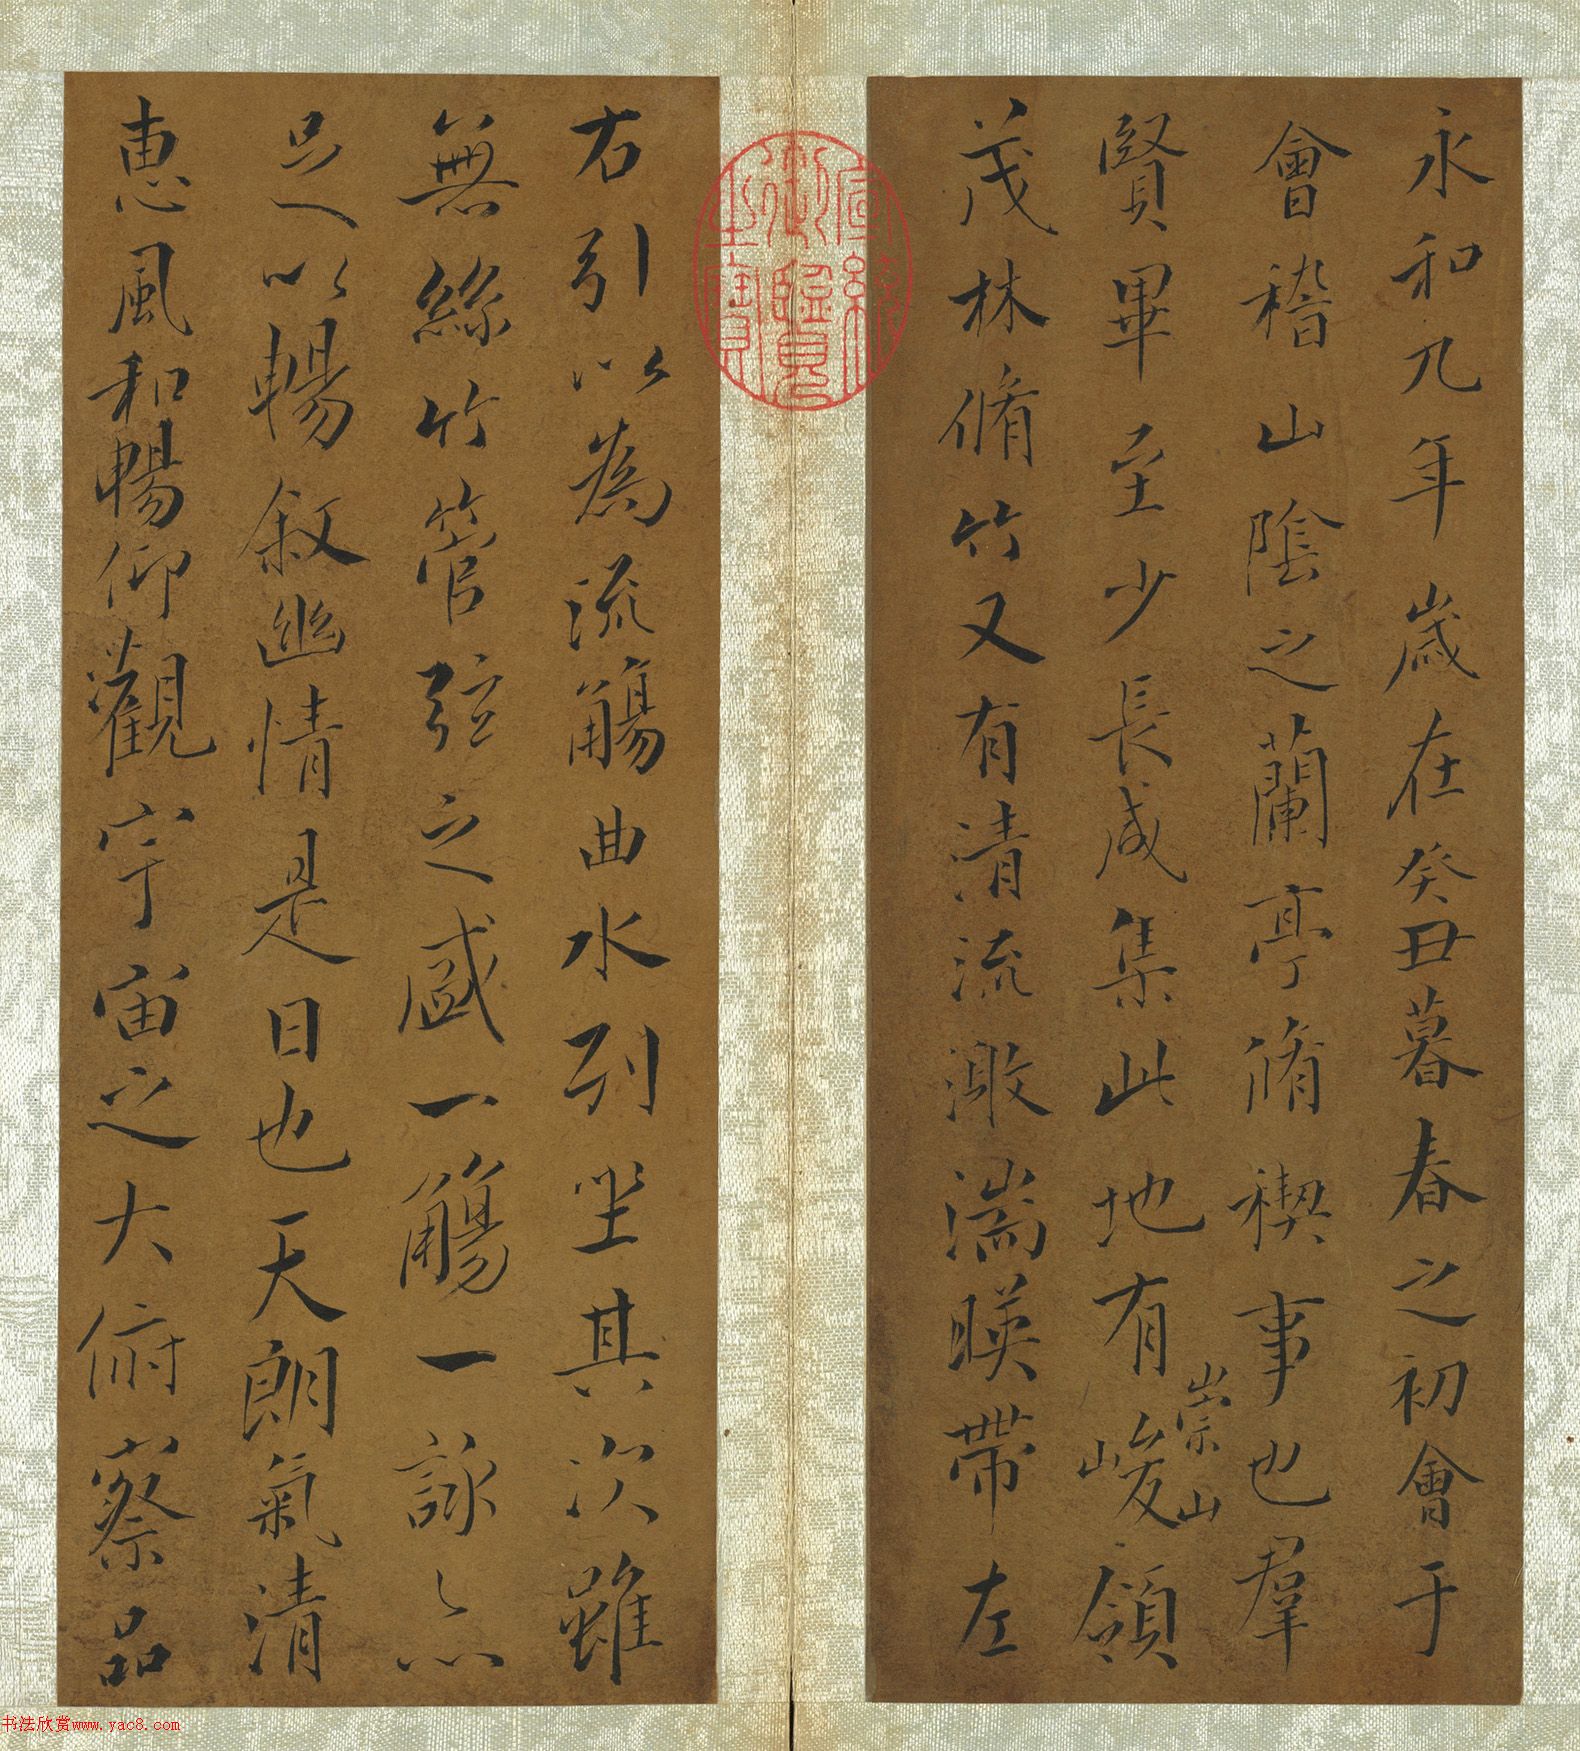 永和九年歲在癸丑暮春之初會于
會稽山陰之蘭亭脩禊事也羣
賢畢至少長咸集此地有峻領
崇山
茂林脩竹又有清流激湍暎帶左
宣統
御覽
之寶
右引以為流觴曲水列坐其次雖
無絲竹管弦之盛一觴一詠亦
足以暢叙幽情是日也天朗氣清
惠風和暢仰觀宇宙之大俯察品
书法欣赏www.yac8.com